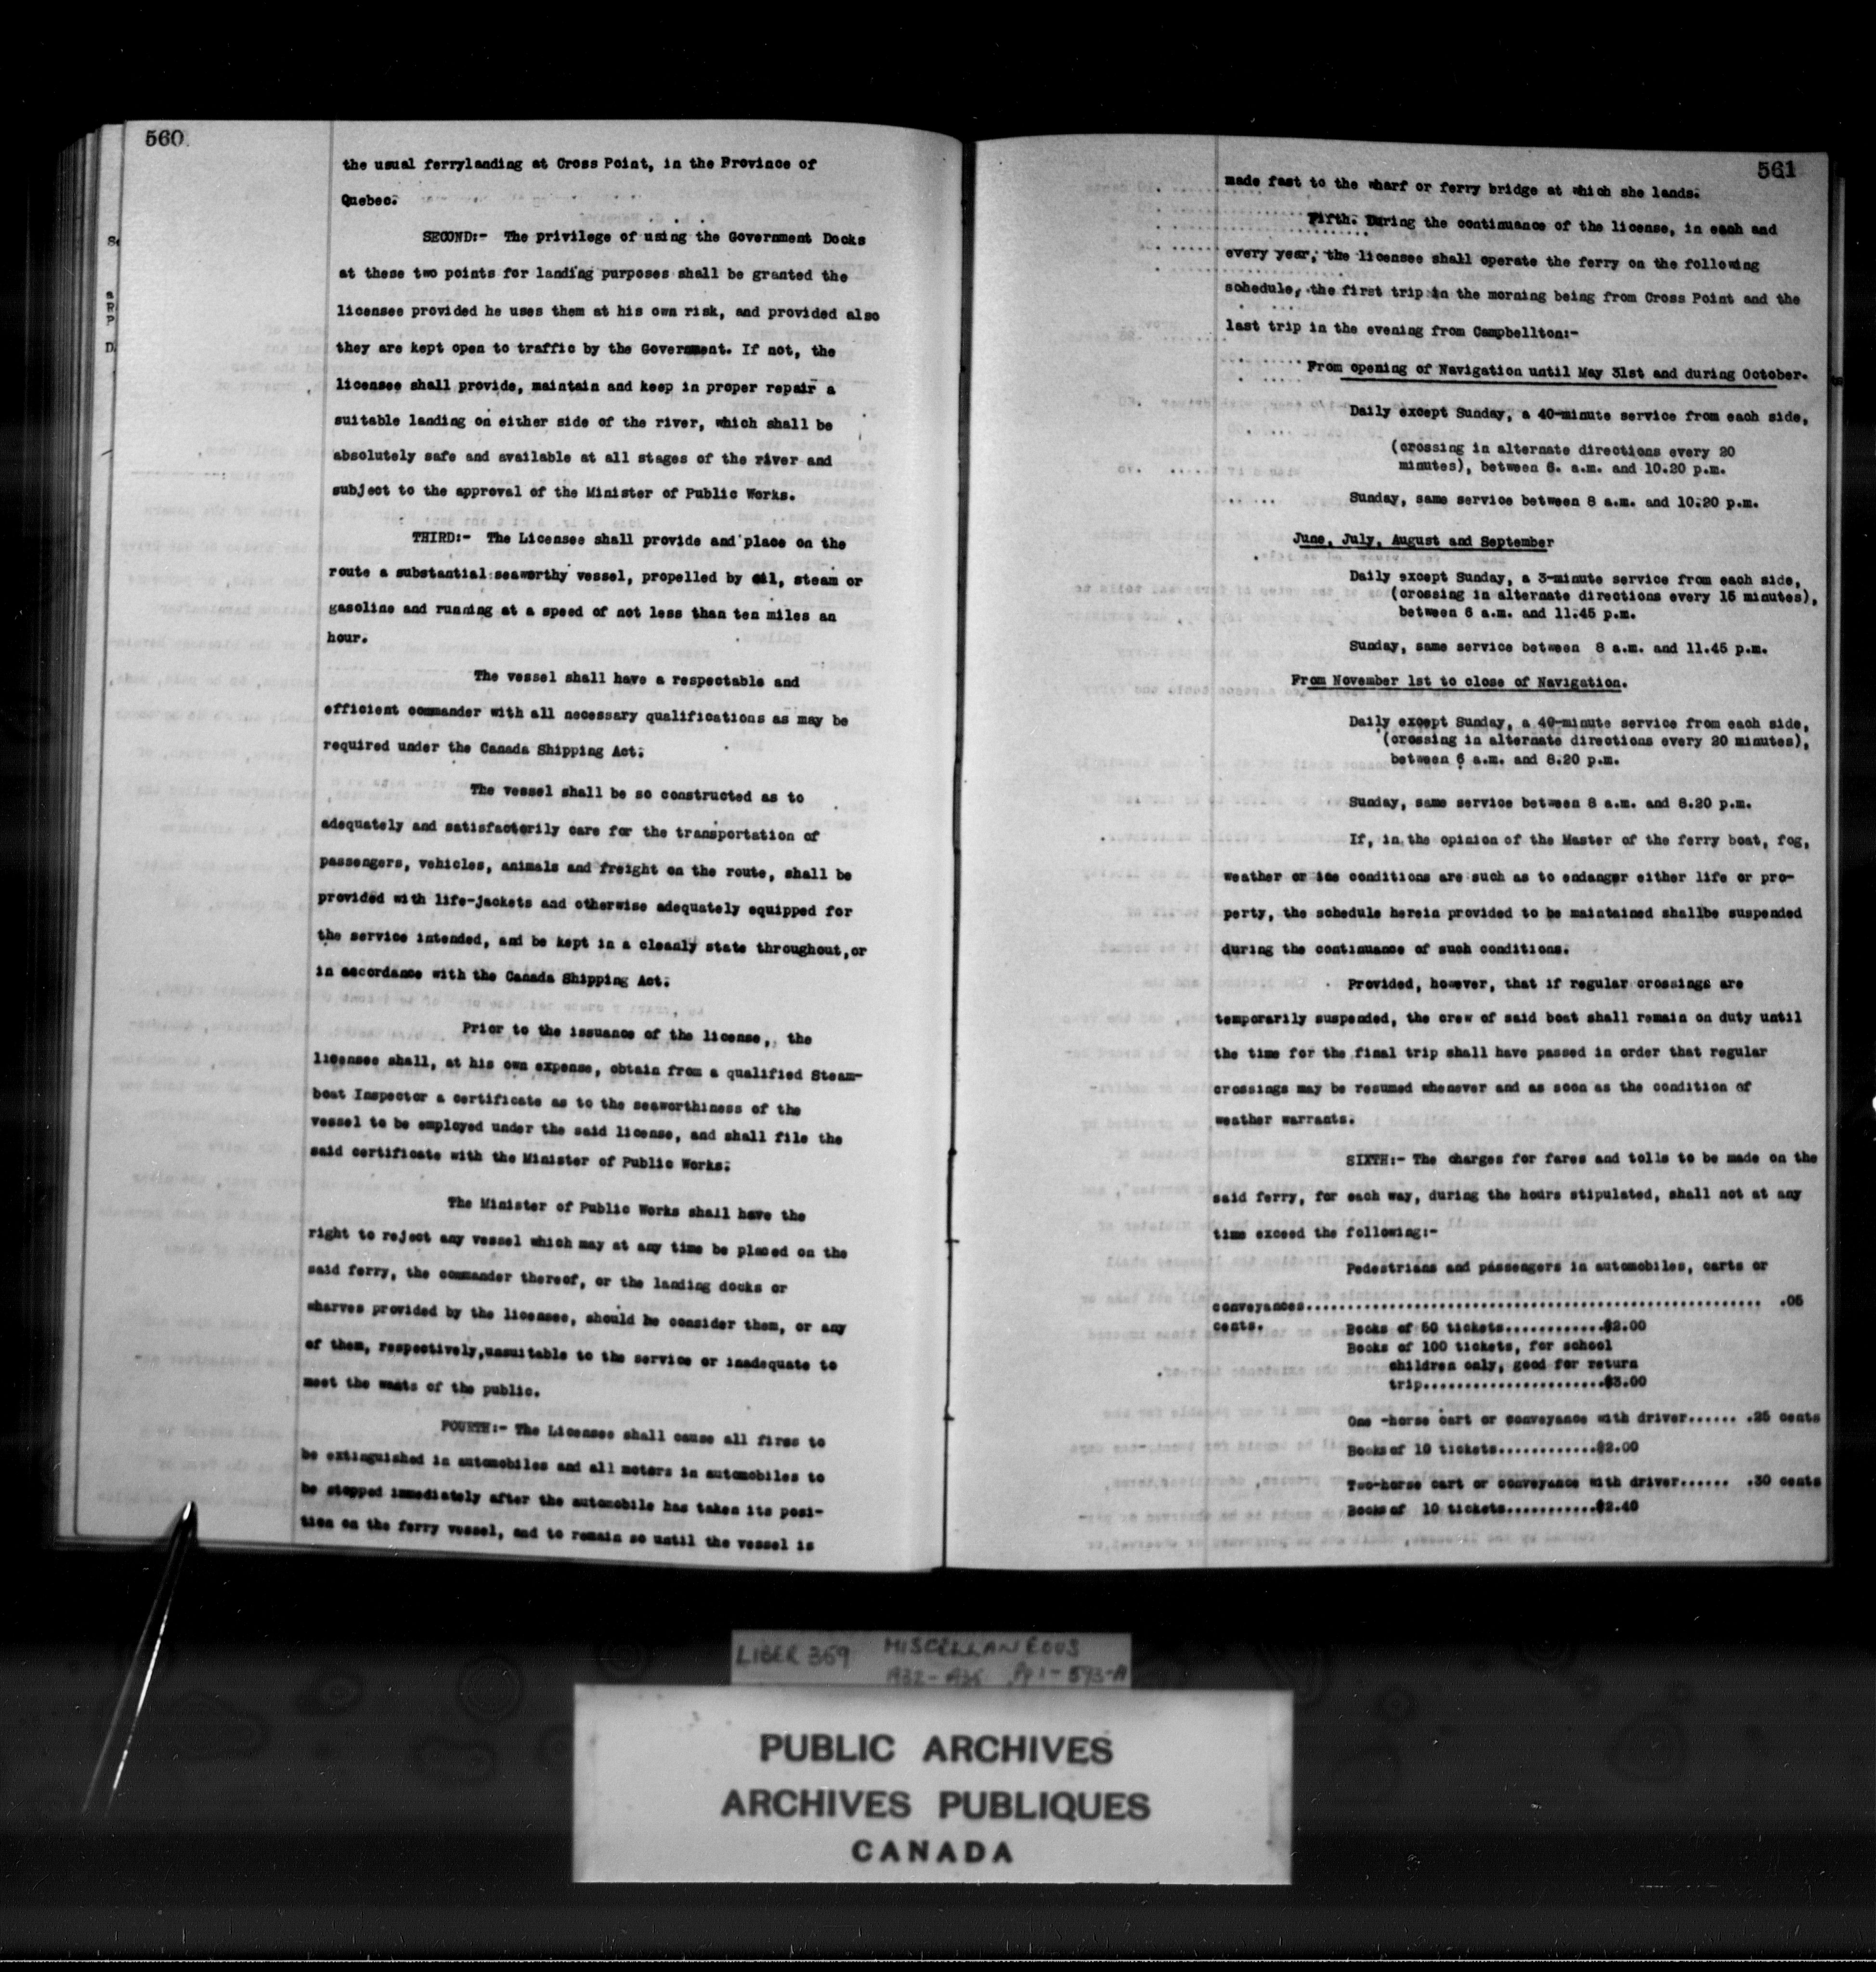 560
the usual ferrylanding at Cross Point, in the Province of
Quebec.
SECOND:- The privilege of using the Government Docks
at these two points for landing purposes shall be granted the
licensee provided he uses them at his own risk, and provided also
they are kept open to traffic by the Government. If not, the
licensee shall provide, maintain and keep in proper repair a
suitable landing on either side of the river, which shall be
absolutely safe and available at all stages of the river and
subject to the approval of the Minister of Public Works.
THIRD:- The Licensee shall provide and place on the
route a substantial seaworthy vessel, propelled by oil, steam or
gasoline and running at a speed of not less than ten miles an
hour.
The vessel shall have a respectable and
efficient commander with all necessary qualifications as may be
required under the Canada Shipping Act.
The vessel shall be so constructed as to
adequately and satisfactorily care for the transportation of
passengers, vehicles, animals and freight on the route, shall be
provided with life-jackets and otherwise adequately equipped for
the service intended, and be kept in a cleanly state throughout,or
in accordance with the Canada Shipping Act.
Prior to the issuance of the license, the
licensee shall, at his own expense, obtain from a qualified Steam-
boat Inspector a certificate as to the seaworthiness of the
vessel to be employed under the said license, and shall file the
said certificate with the Minister of Public Works.
The Minister of Public Works shall have the
right to reject any vessel which may at any time be placed on the
said ferry, the commander thereof, or the landing docks or
wharves provided by the licensee, should he consider them, or any
of them, respectively,unsuitable to the service or inadequate to
meet the wants of the public.
FOURTH:- The Licensee shall cause all fires to
be extinguished in automobiles and all motors in automobiles to
be stopped immediately after the automobile has taken its posi-
tion on the ferry vessel, and to remain so until the vessel is
561
made fast to the wharf or ferry bridge at which she lands.
Fifth. During the continuance of the license, in each and
every year, the licensee shall operate the ferry on the following
schedule, the first trip in the morning being from Cross Point and the
last trip in the evening from Campbellton:-
From opening of Navigation until May 31st and during October.
Daily except Sunday, a 40-minute service from each side,
(crossing in alternate directions every 20
minutes), between 6. a.m. and 10.20 p.m.
Sunday, same service between 8 a.m. and 10.20 p.m.
June, July, August and September
Daily except Sunday, a 3-minute service from each side,
(crossing in alternate directions every 15 minutes),
between 6 a.m. and 11.45 p.m.
Sunday, same service between 8 a.m. and 11.45 p.m.
From November 1st to close of Navigation.
Daily except Sunday, a 40-minute service from each side,
(crossing in alternate directions every 20 minutes),
between 6 a.m. and 8.20 p.m.
Sunday, same service between 8 a.m. and 8.20 p.m.
If, in the opinion of the Master of the ferry boat, fog,
weather or ice conditions are such as to endanger either life or pro-
perty, the schedule herein provided to be maintained shallbe suspended
during the continuance of such conditions.
Provided, however, that if regular crossings are
temporarily suspended, the crew of said boat shall remain on duty until
the time for the final trip shall have passed in order that regular
crossings may be resumed whenever and as soon as the condition of
weather warrants.
SIXTH:- The charges for fares and tolls to be made on the
said ferry, for each way, during the hours stipulated, shall not at any
time exceed the following:-
Pedestrians and passengers in automobiles, carts or
conveyances.......................................................... .05
cents.
Books of 50 tickets............$2.00
Books of 100 tickets, for school
children only, good for return
trip.......................$3.00
One -horse cart or conveyance with driver...... .25 cents
Books of 10 tickets............$2.00
Two-horse cart or conveyance with driver...... .30 cents
Books of 10 tickets...........$2.40
LIBER 369 MISCELLANEOUS
1932-1935 Pp 1-593-A
PUBLIC ARCHIVES
ARCHIVES PUBLIQUES
CANADA